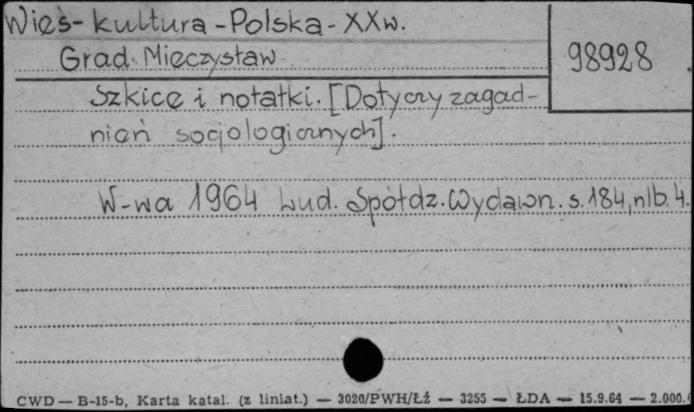 Wieś - kultura - Polska - XX w.
Grad Mieczysław
98928
Szkice i notatki. [Dotyczy zagad-
nień socjologicznych].
W-wa 1964 Lud. Spółdz. Wydawn. s. 184, nlb. 4.
CWD — B-15-b, Karta katal. (z liniat.) — 3020/PWH/Łź — 3255 — ŁDA — 15.9.64 — 2.000.